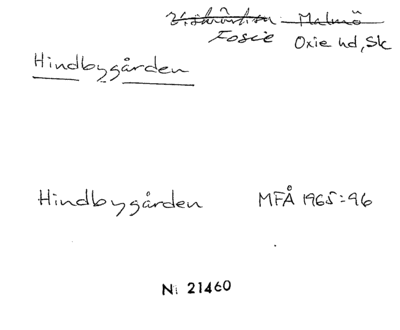 Malmö
Fosie Oxie hd, Sk
Hindbygården
Hindbygården MFÅ 1965:96
N: 21460